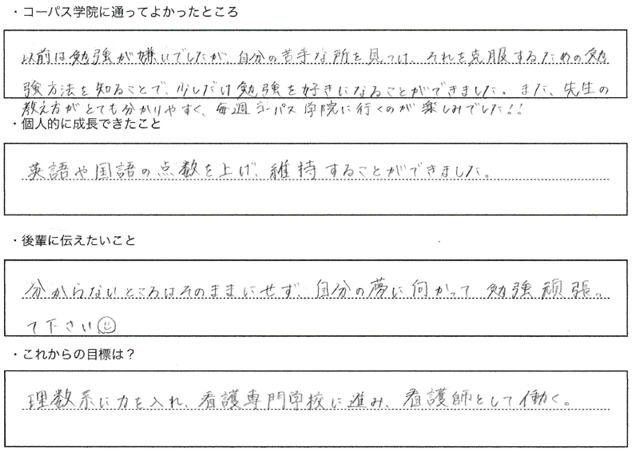 ・コーパス学院に通ってよかったところ
以前は勉強が嫌いでしたが、自分の苦手な所を見つけ、それを克服するための勉
強方法を知ることで、少しだけ勉強を好きになることができました。また、先生の
教え方がとても分かりやすく、毎週コーパス学院に行くのが楽しみでした!!
・個人的に成長できたこと
英語や国語の点数を上げ、維持することができました。
・後輩に伝えたいこと
分からないところはそのままにせず、自分の夢に向かって勉強頑張っ
て下さい☺
・これからの目標は？
理数系に力を入れ、看護専門学校に進み、看護師として働く。